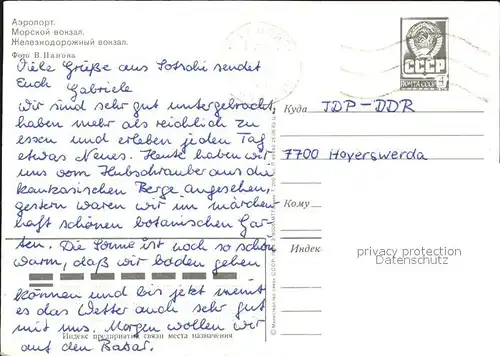 Аэропорт.
Морской вокзал.
Железнодорожный вокзал.
Фото В. Панова
Viele Grüße aus Sotschi sendet
Euch Gabriele
Wir sind sehr gut untergebracht,
haben mehr als reichlich zu
essen und erleben jeden Tag
etwas Neues. Heute haben wir
uns vom Hubschrauber aus die
kaukasischen Berge angesehen,
gestern waren wir im märchen-
haft schönen botanischen Gar-
ten. Die Sonne ist noch so schön
warm, daß wir baden gehen
können und bis jetzt meint
es das Wetter auch sehr gut
mit uns. Morgen wollen wir
auf den Basar.
СССР
Куда JDP-DDR
7700 Hoyerswerda
Кому
Индекс
privacy protection
Datenschutz
Индекс предприятия связи места назначения